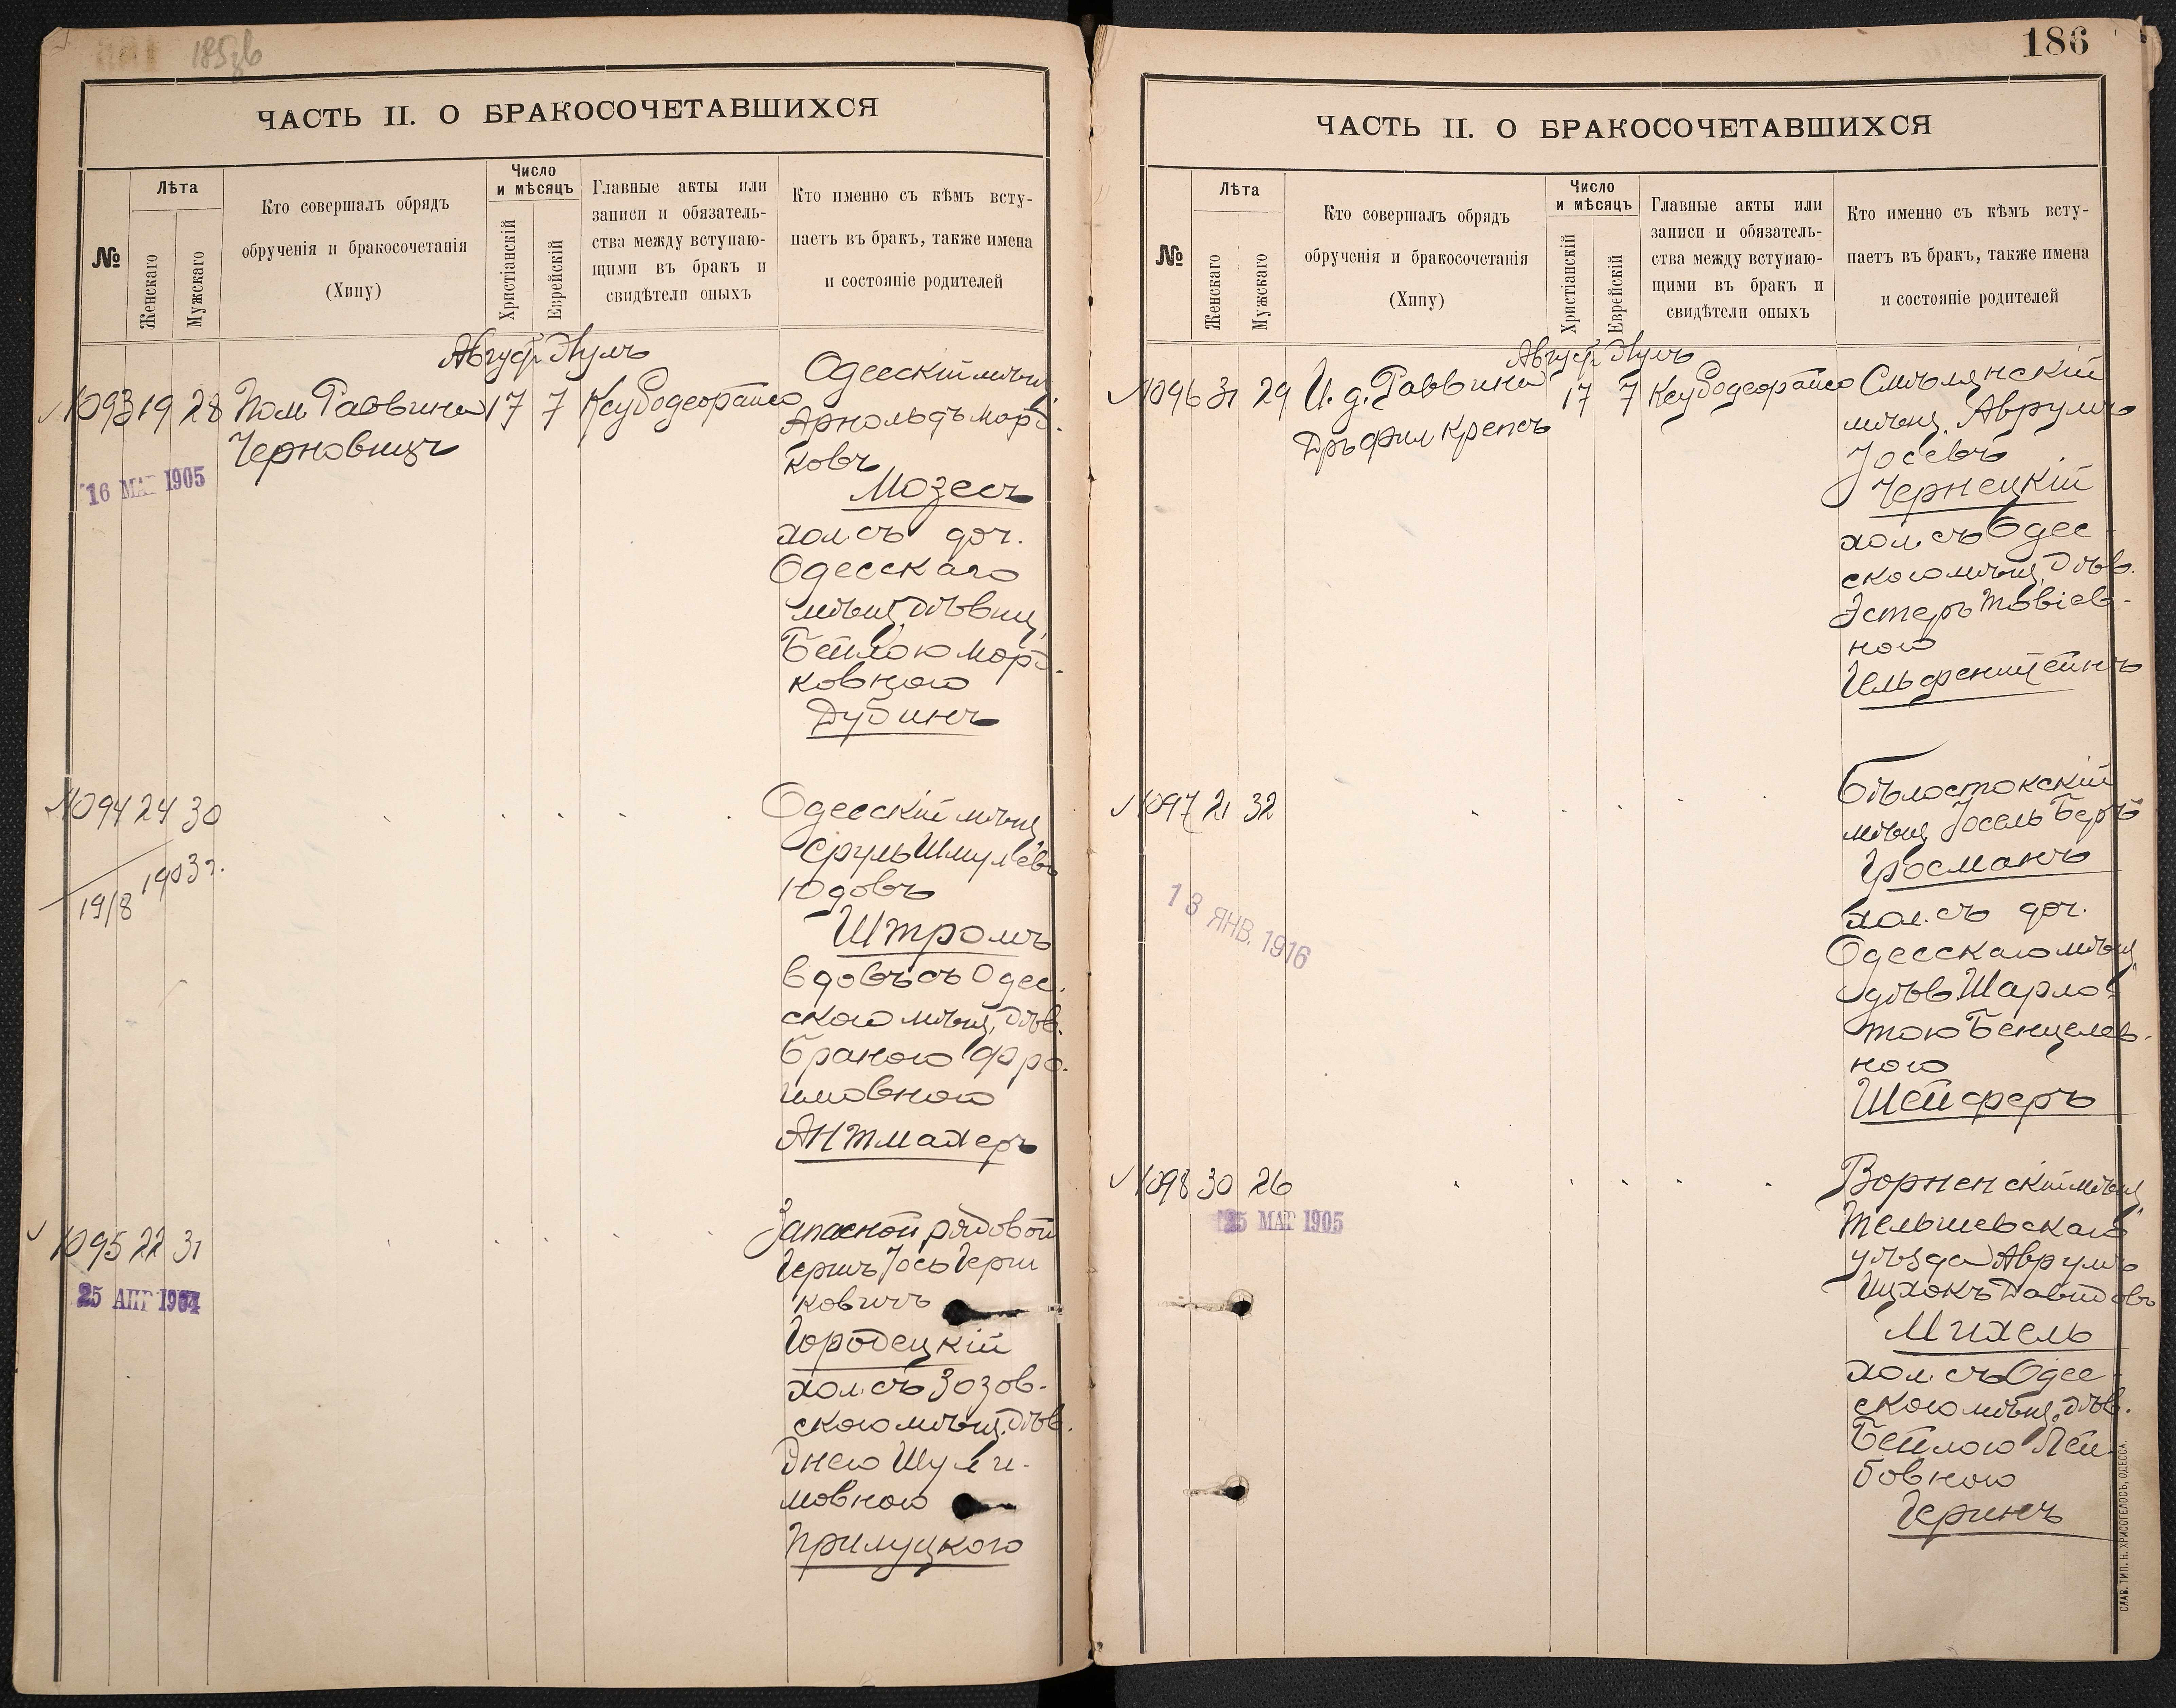 185об
ЧАСТЬ II. О БРАКОСОЧЕТАВШИХСЯ
№
Лѣта
Женскаго
Мужскаго
Кто совершалъ обрядъ
обрученія и бракосочетанія
(Хипу)
Число
и мѣсяцъ
Христіанскій
Еврейскій
Главные акты или
записи и обязатель-
ства между вступаю-
щими въ бракъ и
свидѣтели оныхъ
Кто именно съ кѣмъ всту-
паетъ въ бракъ, также имена
и состояніе родителей
1093 19 28 Пом. Раввина 17 7
Черновицъ
16 МАР 1905
Одесскій мѣщ.
Арнольдъ Морд-
ковъ
Мозесъ
хол. съ доч.
Одесскаго
мѣщ. дѣвиц.
Бейлою Морд-
ковною
Дубинъ
1094 24 30
19/8 1903 г.
Одесскій мѣщ.
Сруль Шмулевъ
Юдовъ
Штромъ
вдовъ съ Одес-
скою мѣщ. дѣв.
Браною Фро-
имовною
Антмахеръ
1095 22 31
25 АПР 1904
Запасной рядовой
Гершъ Іось Герш
ковичъ
Городецкій
хол. съ Зозов-
скою мѣщ. дѣв.
Энею Шули-
мовною
Прилуцкою
186
ЧАСТЬ II. О БРАКОСОЧЕТАВШИХСЯ
№
Лѣта
Женскаго
Мужскаго
Кто совершалъ обрядъ
обрученія и бракосочетанія
(Хипу)
Число
и мѣсяцъ
Христіанскій
Еврейскій
Главные акты или
записи и обязатель-
ства между вступаю-
щими въ бракъ и
свидѣтели оныхъ
Кто именно съ кѣмъ всту-
паетъ въ бракъ, также имена
и состояніе родителей
1096 31 29 И. д. Раввина 17 7
Дръ фил. Крепсъ
Смѣлянскій
мѣщ. Аврумъ
Іосевъ
Чернецкій
хол. съ Одес-
скою мѣщ. дѣв.
Эстеръ Товіев-
ною
Ильфенштейнъ
1097 21 32
13 ЯНВ. 1916
Бѣлостокскій
мѣщ. Іосель Беръ
Гросманъ
хол. съ доч.
Одесскаго мѣщ.
дѣв. Шарло-
тою Бенцелев-
ною
Шейферъ
1098 30 26
25 МАР 1905
Ворненскій мѣщ.
Тельшевскаго
уѣзда Аврумъ
Ицхокъ Давидовъ
Михель
хол. съ Одес-
скою мѣщ. дѣв.
Бейлою Лей-
бовною
Геринъ
СЛАВ. ТИП. Н. ХРИСОГЕЛОСЪ, ОДЕССА.